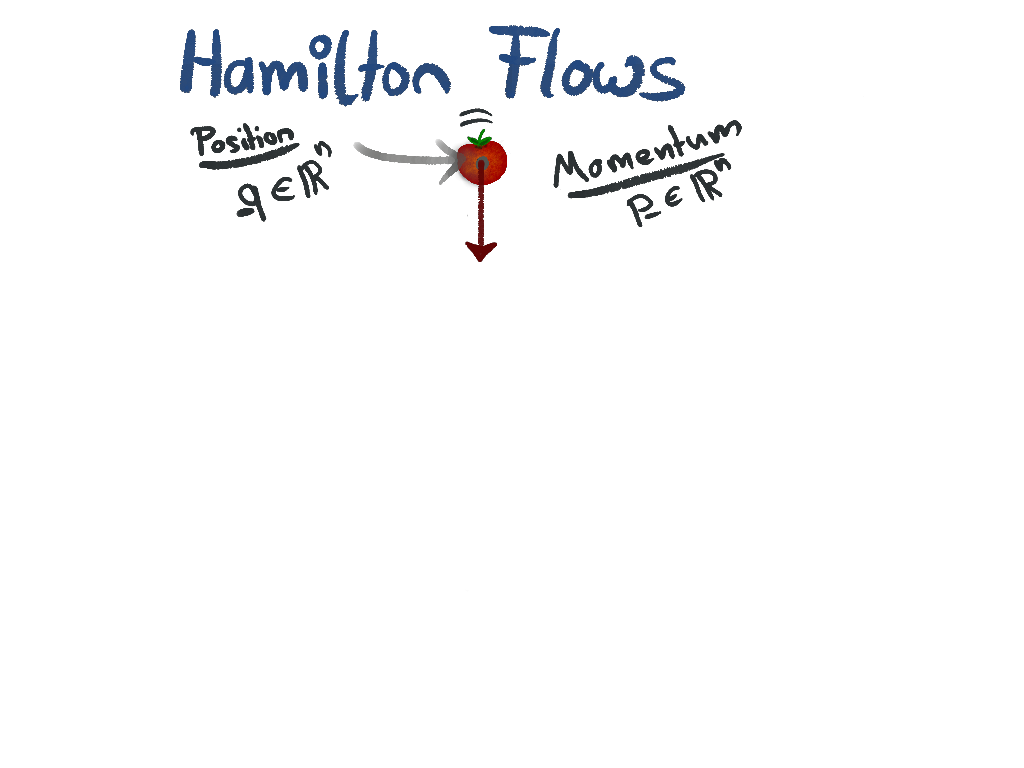 Hamilton Flows
Position
q ∈ ℝⁿ
Momentum
p ∈ ℝⁿ